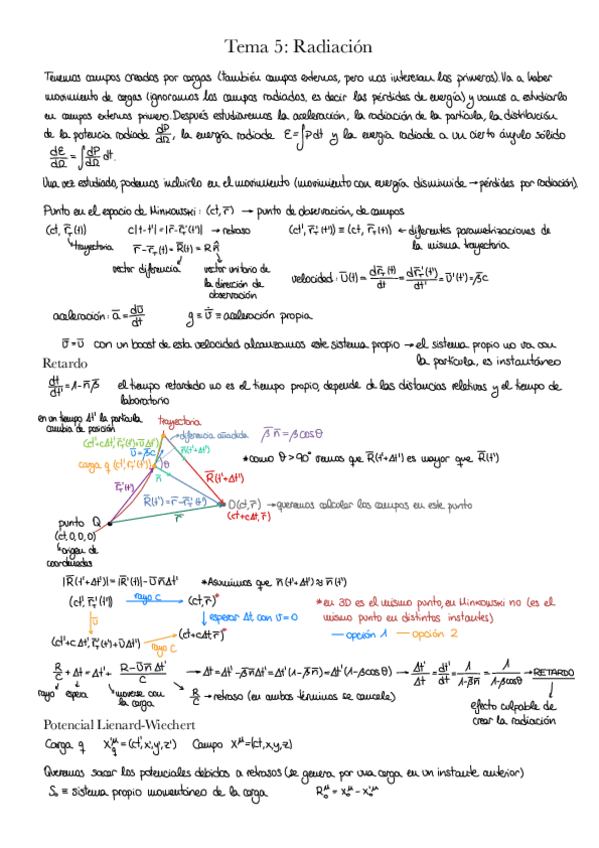 Tema 5: Radiación
Tenemos campos creados por cargas (también campos externos, pero nos interesan los primeros). Va a haber
movimiento de cargas (ignoramos los campos radiados, es decir las pérdidas de energía) y vamos a estudiarlo
en campos externos primero. Después estudiaremos la aceleración, la radiación de la partícula, la distribución
de la potencia radiada dP/dΩ, la energía radiada E=∫Pdt y la energía radiada a un cierto ángulo sólido
dE/dΩ = ∫dP/dΩ dt.
Una vez estudiado, podemos incluirlo en el movimiento (movimiento con energía disminuida → pérdidas por radiación).
Punto en el espacio de Minkowski: (ct, r̄) → punto de observación, de campos
(ct, r̄ᵣ(t)) c|t-t'| = |r̄-r̄ᵣ'(t')| → retraso (ct', r̄ᵣ'(t')) ≡ (ct, r̄ᵣ(t)) ← diferentes parametrizaciones de
trayectoria r̄-r̄ᵣ(t) = R̄(t) = R R̂ la misma trayectoria
vector diferencia vector unitario de
la dirección de
observación
velocidad: ū(t) = dr̄ᵣ(t)/dt = dr̄ᵣ'(t')/dt' = ū'(t') = β̄c
aceleración: ā = dū/dt g ≡ v̄̇ ≡ aceleración propia
v̄=ū con un boost de esta velocidad alcanzamos este sistema propio → el sistema propio no va con
la partícula, es instantáneo
Retardo
dt/dt' = 1-n̄β̄ el tiempo retardado no es el tiempo propio, depende de las distancias relativas y el tiempo de
laboratorio
en un tiempo Δt' la partícula
cambia de posición
trayectoria
(ct'+cΔt', r̄ᵣ'(t')+ūΔt')
diferencia añadida
β̄n̄ = βcosθ
ū=β̄c
n̄(t'+Δt')
carga q (ct', r̄ᵣ'(t'))
θ
n̄
R̄(t'+Δt')
*como θ>90° vemos que R̄(t'+Δt') es mayor que R̄(t')
r̄ᵣ'(t')
R̄(t') = r̄-r̄ᵣ'(t')
O(ct, r̄) → queremos calcular los campos en este punto
(ct+cΔt, r̄)
r̄
punto Q
(ct, 0, 0, 0)
origen de
coordenadas
|R̄(t'+Δt')| = |R̄'(t)| - ūn̄Δt' *Asumimos que n̄(t'+Δt') ≈ n̄(t')
(ct', r̄ᵣ'(t')) rayo c (ct, r̄)*
*en 3D es el mismo punto, en Minkowski no (es el
mismo punto en distintos instantes)
ū esperar Δt, con v=0
— opción 1 — opción 2
(ct'+cΔt', r̄ᵣ'(t')+ūΔt') rayo c (ct+cΔt, r̄)*
R/c + Δt = Δt' + (R-ūn̄Δt')/c → Δt = Δt'-β̄n̄Δt' = Δt'(1-β̄n̄) = Δt'(1-βcosθ) → Δt'/Δt = dt'/dt = 1/(1-β̄n̄) = 1/(1-βcosθ) → RETARDO
rayo espera moverse con
la carga
R/c → retraso (en ambos términos se cancela)
efecto culpable de
crear la radiación
Potencial Lienard-Wiechert
Carga q X'ᵘ_q = (ct', x', y', z') Campo Xᵘ = (ct, x, y, z)
Queremos sacar los potenciales debidos a retrasos (se genera por una carga en un instante anterior)
S₀ ≡ sistema propio momentáneo de la carga R₀ᵘ = x₀ᵘ - x₀'ᵘ